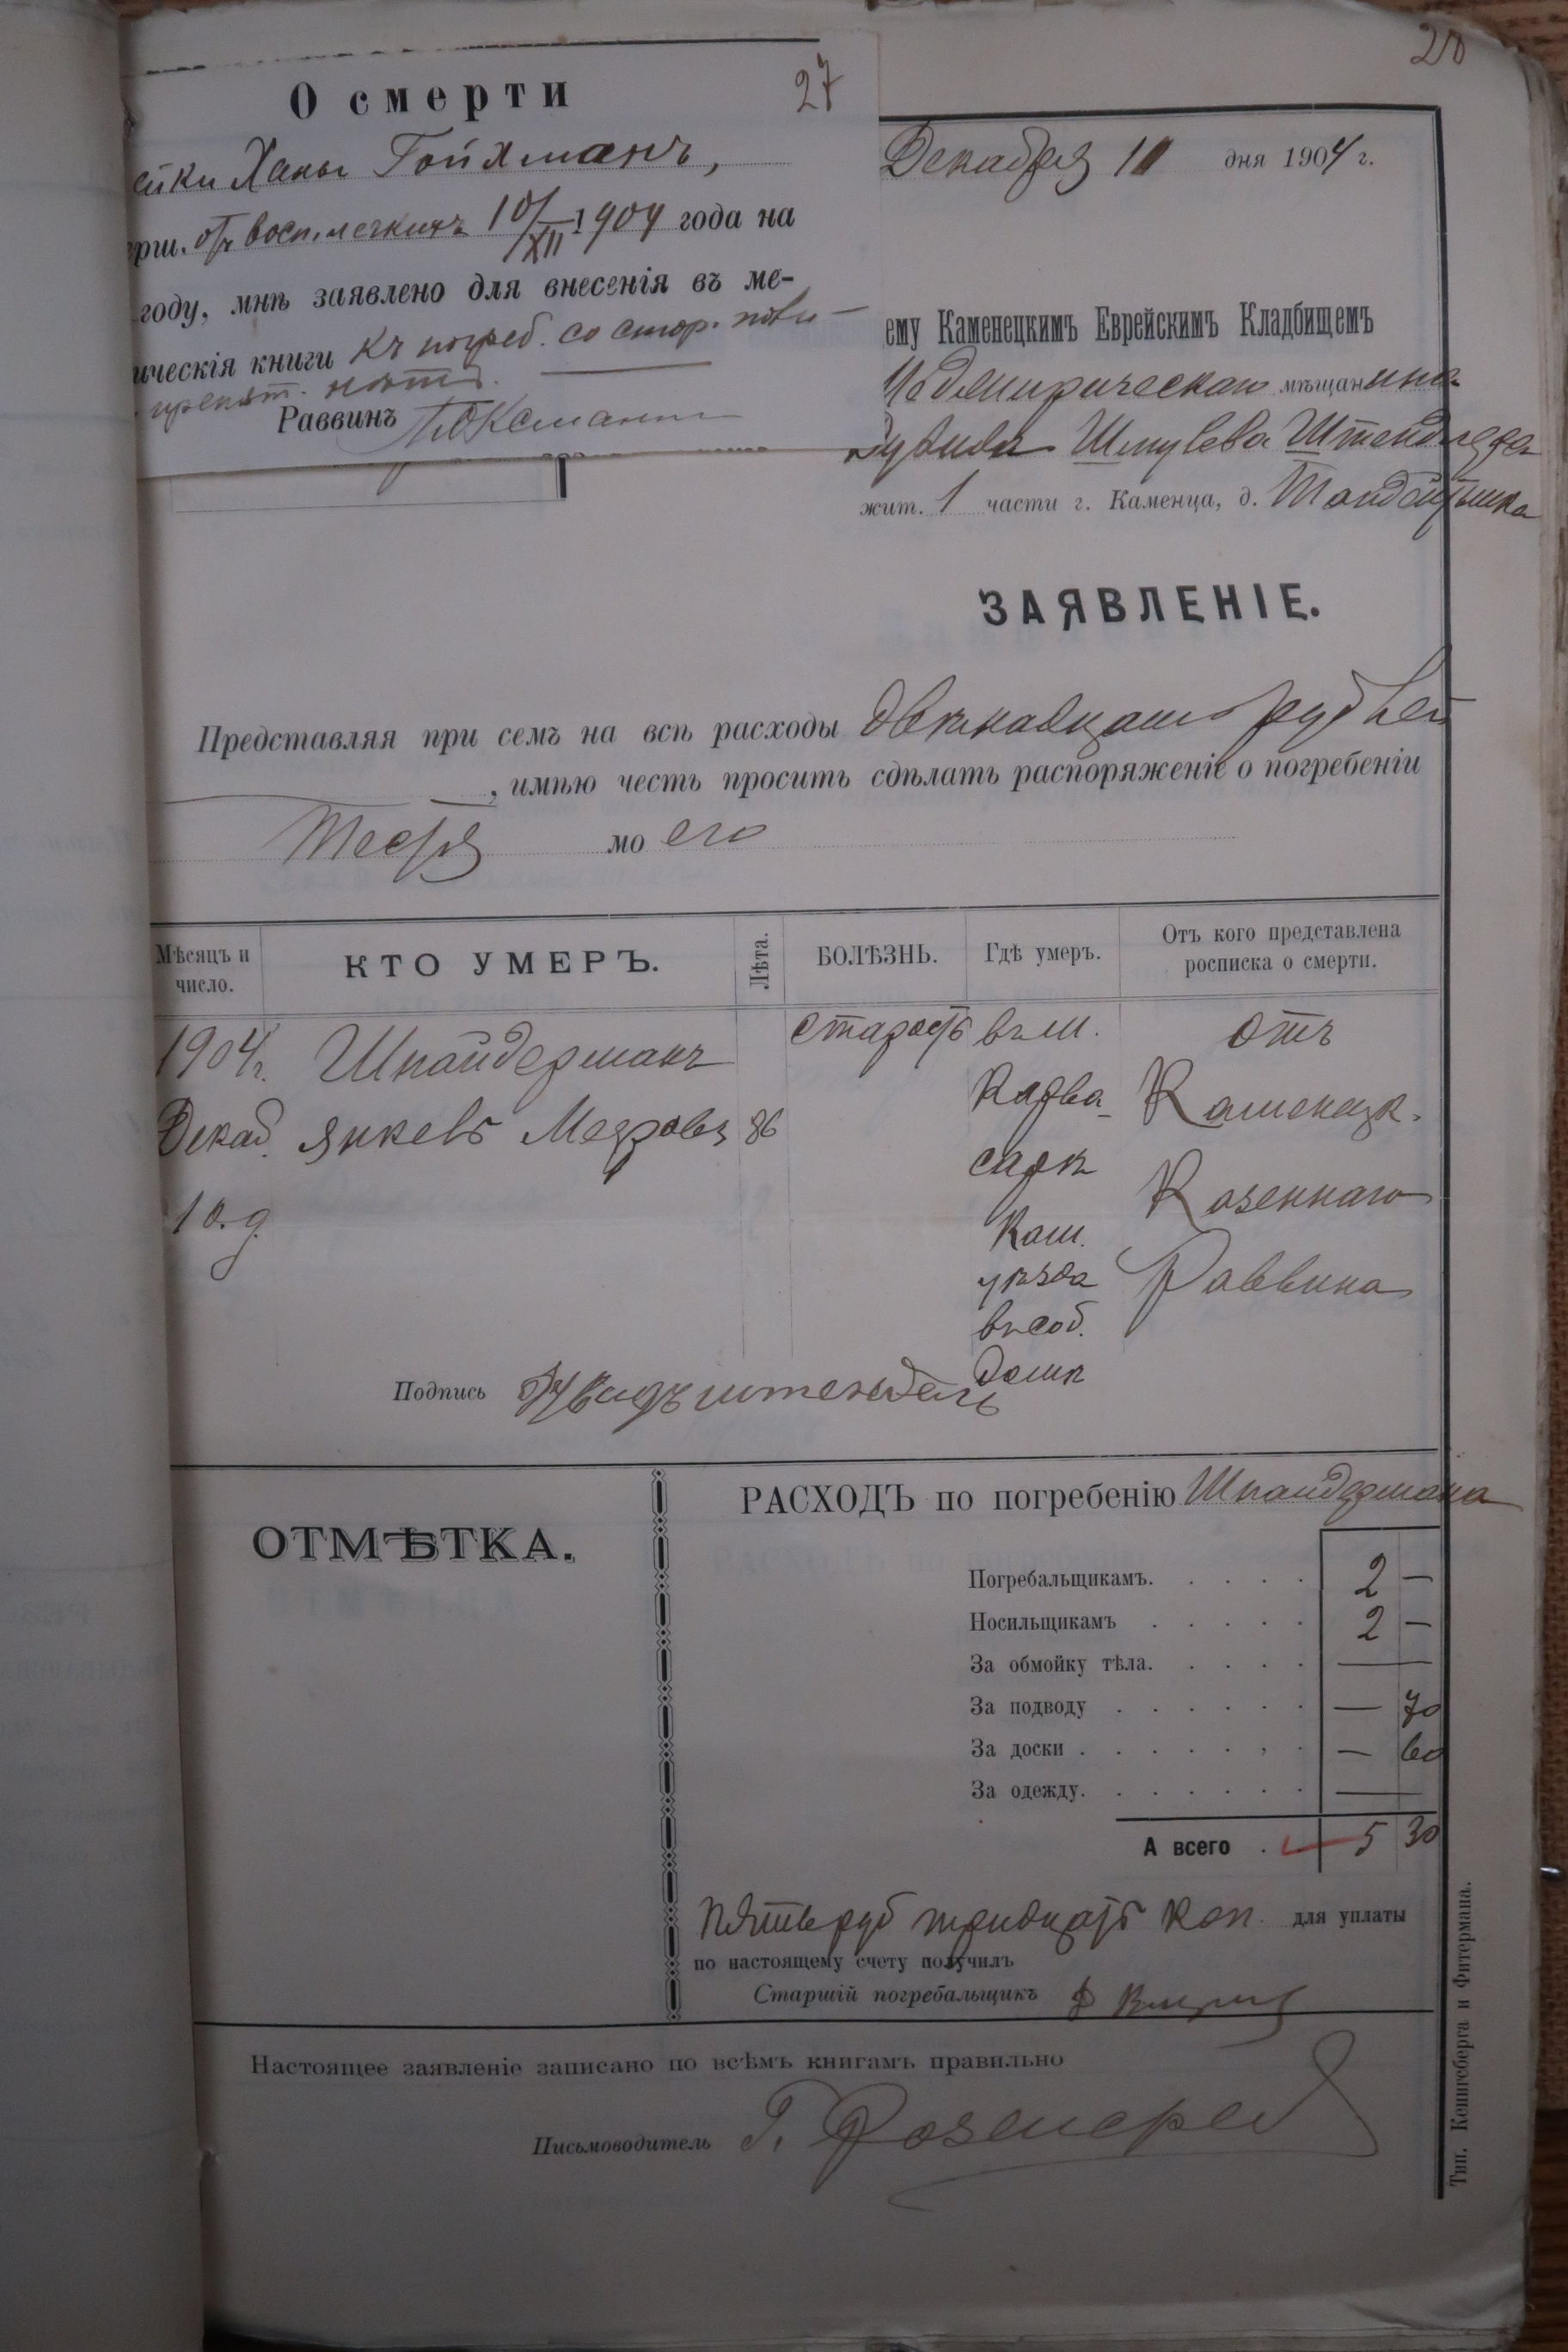 О смерти
27
ейки Ханы Гойхманъ,
ерш. отъ восп. легкихъ 10/XII 1904 года на
году, мнѣ заявлено для внесенія въ ме-
ическія книги къ погреб. со стор.
препят. нѣтъ.
Раввинъ
28
Декабря 10 дня 1904 г.
ему Каменецкимъ Еврейскимъ Кладбищемъ
мѣщанина
Дувида Шмулева Штенделя
жит. 1 части г. Каменца, д.
ЗАЯВЛЕНІЕ.
Представляя при семъ на всѣ расходы двѣнадцать рублей
, имѣю честь просить сдѣлать распоряженіе о погребеніи
Тестя моего
Мѣсяцъ и число.
КТО УМЕРЪ.
Лѣта.
БОЛѢЗНЬ.
Гдѣ умеръ.
Отъ кого представлена росписка о смерти.
1904 г.
Декаб.
10 д.
Шнайдерманъ
Янкель Меэровъ
86
старость
въ м.
Жарва-
сарѣ
Кам.
уѣзда
въ соб.
домѣ
Отъ
Каменецк.
Казеннаго
Раввина
Подпись Дувидъ штендель
ОТМѢТКА.
РАСХОДЪ по погребенію Шнайдермана
Погребальщикамъ. . . . . 2 —
Носильщикамъ . . . . . 2 —
За обмойку тѣла. . . . . —
За подводу . . . . . . — 70
За доски . . . . . , . — 60
За одежду. . . . . . . —
А всего . 5 30
Пять руб тридцать коп. для уплаты
по настоящему счету получилъ
Старшій погребальщикъ
Настоящее заявленіе записано по всѣмъ книгамъ правильно
Письмоводитель
Тип. Кенигсберга и Фитермана.